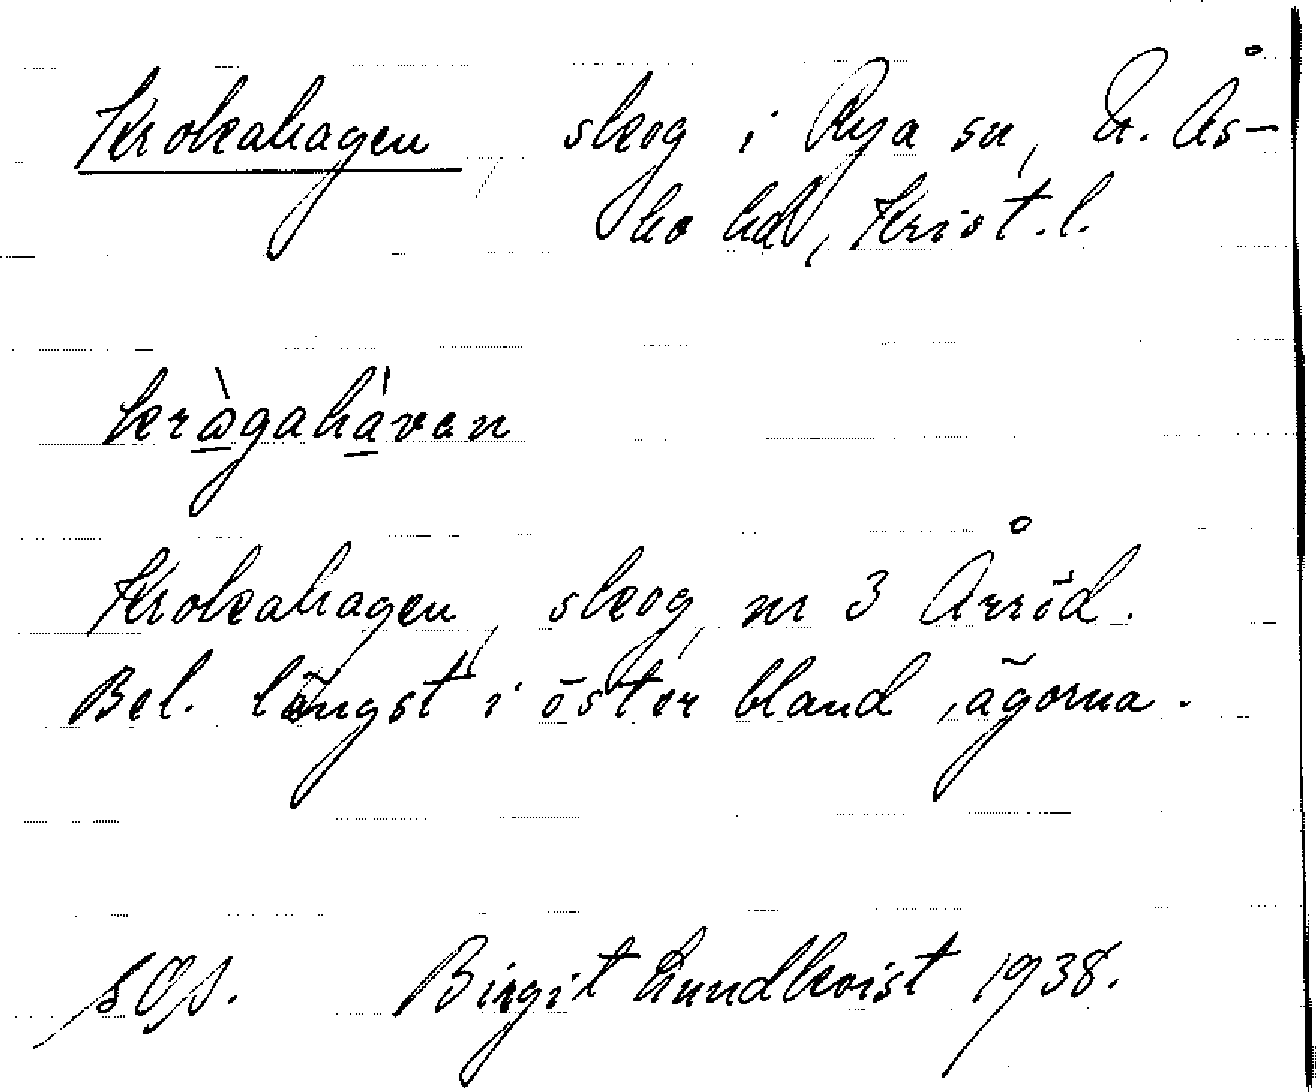 Krokahagen, skog i Rya sn, N. Ås-
bo hd, Krist. l.
kràgahávan
Krokahagen, skog, nr 3 Árröd.
Bel. längst i öster bland ägorna.
SOA. Birgit Lundkvist 1938.